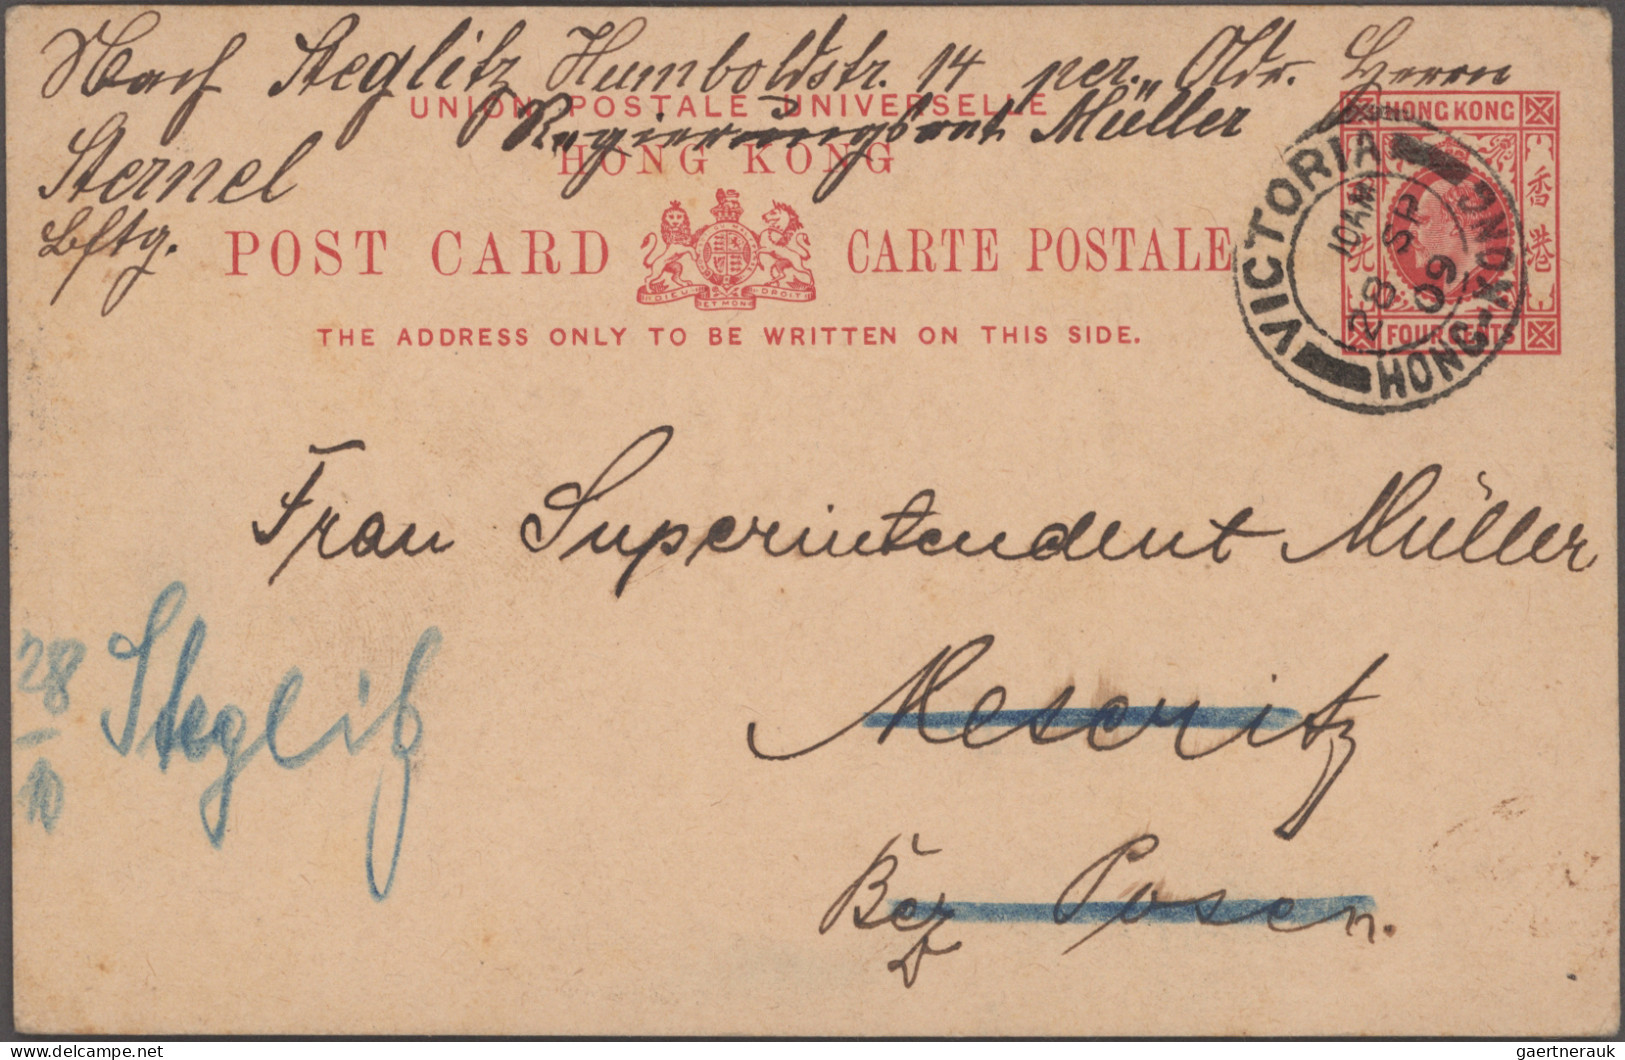 Nach Steglitz Humboldstr. 14 per. Adr. Herrn
UNION POSTALE UNIVERSELLE
Regierungsrat Müller
HONG KONG
Sternel
Bftg.
POST CARD CARTE POSTALE
DIEU ET MON DROIT
THE ADDRESS ONLY TO BE WRITTEN ON THIS SIDE.
HONG KONG
香港
FOUR CENTS
VICTORIA
10 AM
28 SP
09
HONG-KONG
Frau Superintendent Müller
28
10
Steglitz
Meseritz
Bez Posen.
gaertnerauk